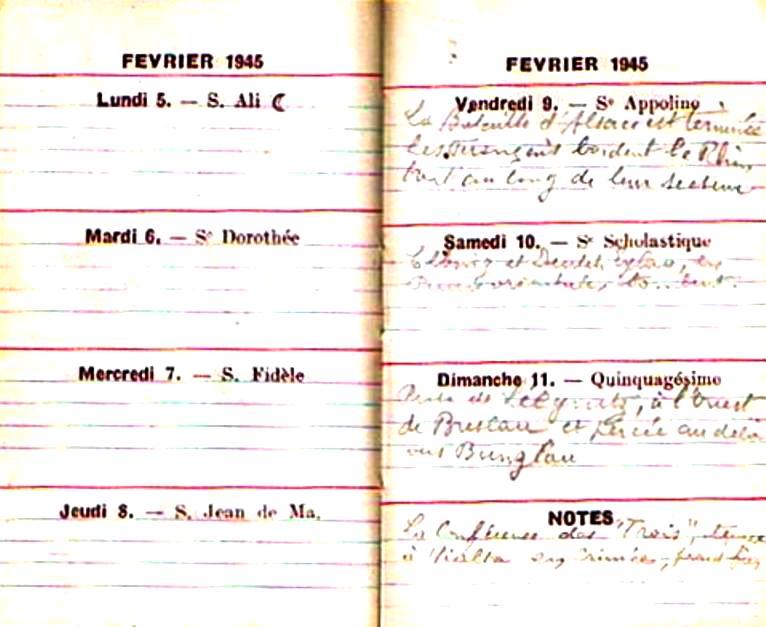 FEVRIER 1945
Lundi 5. — S. Ali ☾
Mardi 6. — Sᵉ Dorothée
Mercredi 7. — S. Fidèle
Jeudi 8. — S. Jean de Ma.
FEVRIER 1945
Vendredi 9. — Sᵉ Appoline
La Bataille d'Alsace est terminée
les bordent le Rhin
tout au long de leur secteur
Samedi 10. — Sᵉ Scholastique
Elbing et Deutsch Eylau, en
orientale, tombent.
Dimanche 11. — Quinquagésime
de, à l'ouest
de Breslau et percée au delà
vers Bunzlau
NOTES
La Conférence des "Trois", tenue
à Yalta en Crimée, prend fin